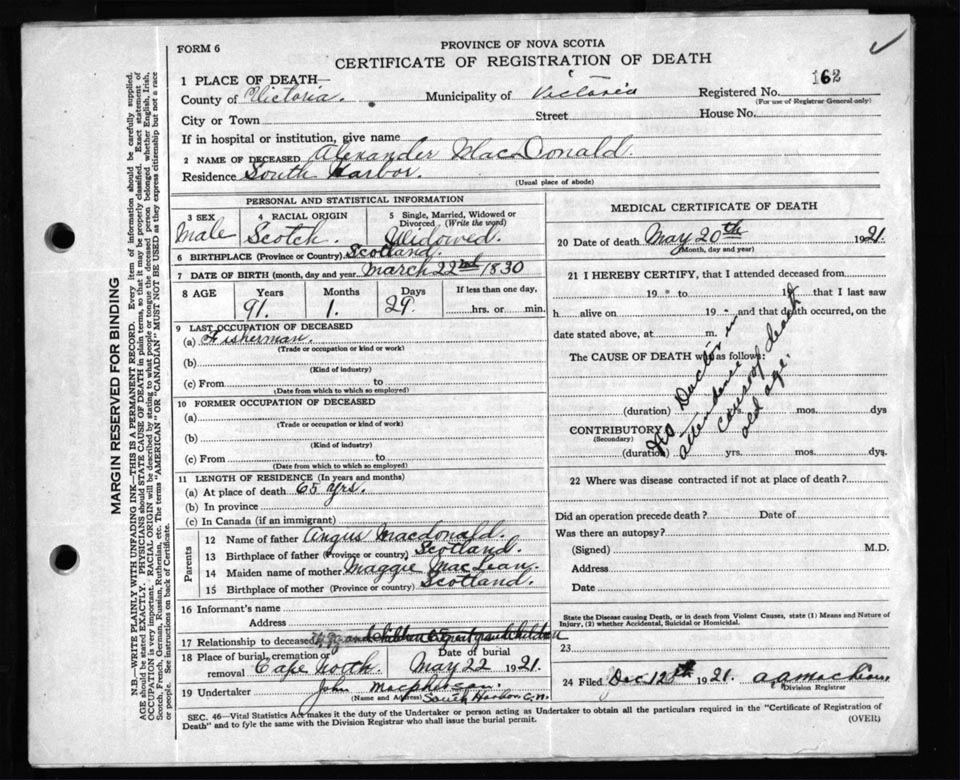 FORM 6
PROVINCE OF NOVA SCOTIA
CERTIFICATE OF REGISTRATION OF DEATH
162
1 PLACE OF DEATH—
County of Victoria. Municipality of Victoria Registered No.
(For use of Registrar General only)
City or Town Street House No.
If in hospital or institution, give name
2 NAME OF DECEASED Alexander MacDonald.
Residence South Harbor.
(Usual place of abode)
PERSONAL AND STATISTICAL INFORMATION
3 SEX 4 RACIAL ORIGIN 5 Single, Married, Widowed or Divorced (Write the word)
Male Scotch. Widowed.
6 BIRTHPLACE (Province or Country) Scotland.
7 DATE OF BIRTH (month, day and year) March 22nd 1830
8 AGE Years Months Days If less than one day,
91. 1. 29. hrs. or min.
9 LAST OCCUPATION OF DECEASED
(a) Fisherman.
(Trade or occupation or kind or work)
(b)
(Kind of industry)
(c) From to
(Date from which to which so employed)
10 FORMER OCCUPATION OF DECEASED
(a)
(Trade or occupation or kind of work)
(b)
(Kind of industry)
(c) From to
(Date from which to which so employed)
11 LENGTH OF RESIDENCE (In years and months)
(a) At place of death 65 yrs.
(b) In province
(c) In Canada (if an immigrant)
Parents
12 Name of father Angus Macdonald.
13 Birthplace of father (Province or country) Scotland.
14 Maiden name of mother Maggie MacLean.
15 Birthplace of mother (Province or country) Scotland.
16 Informant's name
Address
17 Relationship to deceased grandchildren great grandchildren
18 Place of burial, cremation or removal Cape North. Date of burial May 22 1921.
19 Undertaker John Macpherson.
(Name and Address) South Harbor C.N.
MEDICAL CERTIFICATE OF DEATH
20 Date of death May 20th 1921.
(Month, day and year)
21 I HEREBY CERTIFY, that I attended deceased from
19 to 19 that I last saw
h alive on 19 and that death occurred, on the
date stated above, at m.
The CAUSE OF DEATH was as follows:
No Doctor in
attendance
cause of death
old age.
(duration) yrs. mos. dys
CONTRIBUTORY
(Secondary)
(duration) yrs. mos. dys.
22 Where was disease contracted if not at place of death?
Did an operation precede death? Date of
Was there an autopsy?
(Signed) M.D.
Address
Date
State the Disease causing Death, or in death from Violent Causes, state (1) Means and Nature of
Injury, (2) whether Accidental, Suicidal or Homicidal.
23
24 Filed Dec 12th 1921.
Division Registrar
SEC. 46—Vital Statistics Act makes it the duty of the Undertaker or person acting as Undertaker to obtain all the particulars required in the "Certificate of Registration of
Death" and to fyle the same with the Division Registrar who shall issue the burial permit.
(OVER)
MARGIN RESERVED FOR BINDING
N.B.—WRITE PLAINLY WITH UNFADING INK—THIS IS A PERMANENT RECORD. Every item of information should be carefully supplied.
AGE should be stated EXACTLY. PHYSICIANS should STATE CAUSE OF DEATH in plain terms, so that it may be properly classified. Exact statement of
OCCUPATION is very important. RACIAL ORIGIN will be described by stating to what people or tongue the deceased person belonged, whether English, Irish,
Scotch, French, German, Russian, Ruthenian, etc. The terms "AMERICAN" or "CANADIAN" MUST NOT BE USED as they express citizenship but not a race
or people. See instructions on back of Certificate.